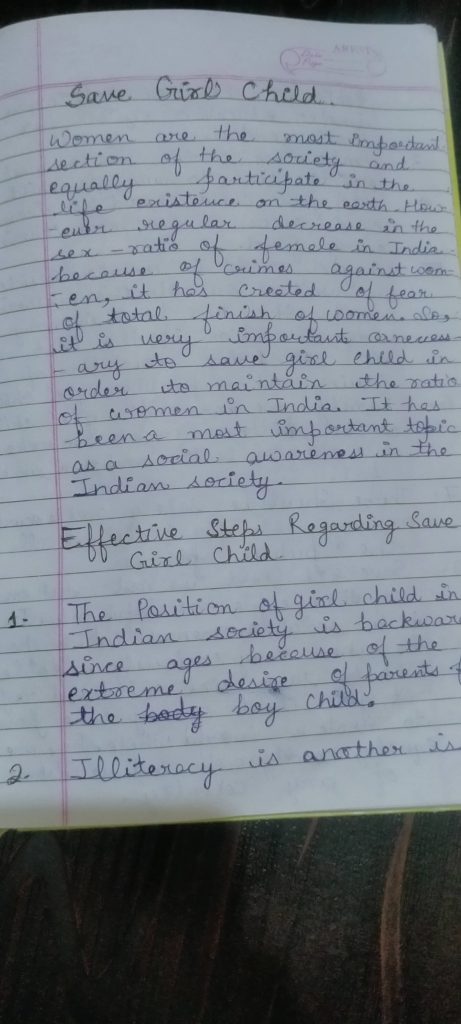 Date
Page
Save Girl Child.
Women are the most important
section of the society and
equally participate in the
life existence on the earth. How
-ever regular decrease in the
sex-ratio of female in India
because of crimes against wom
-en, it has created of fear
of total finish of women. also,
it is very important necess
-ary to save girl child in
order to maintain the ratio
of women in India. It has
been a most important topic
as a social awareness in the
Indian society.
Effective Steps Regarding Save
Girl Child
1. The Position of girl child in
Indian society is backwar
since ages because of the
extreme desire of parents f
the body boy child.
2. Illiteracy is another is